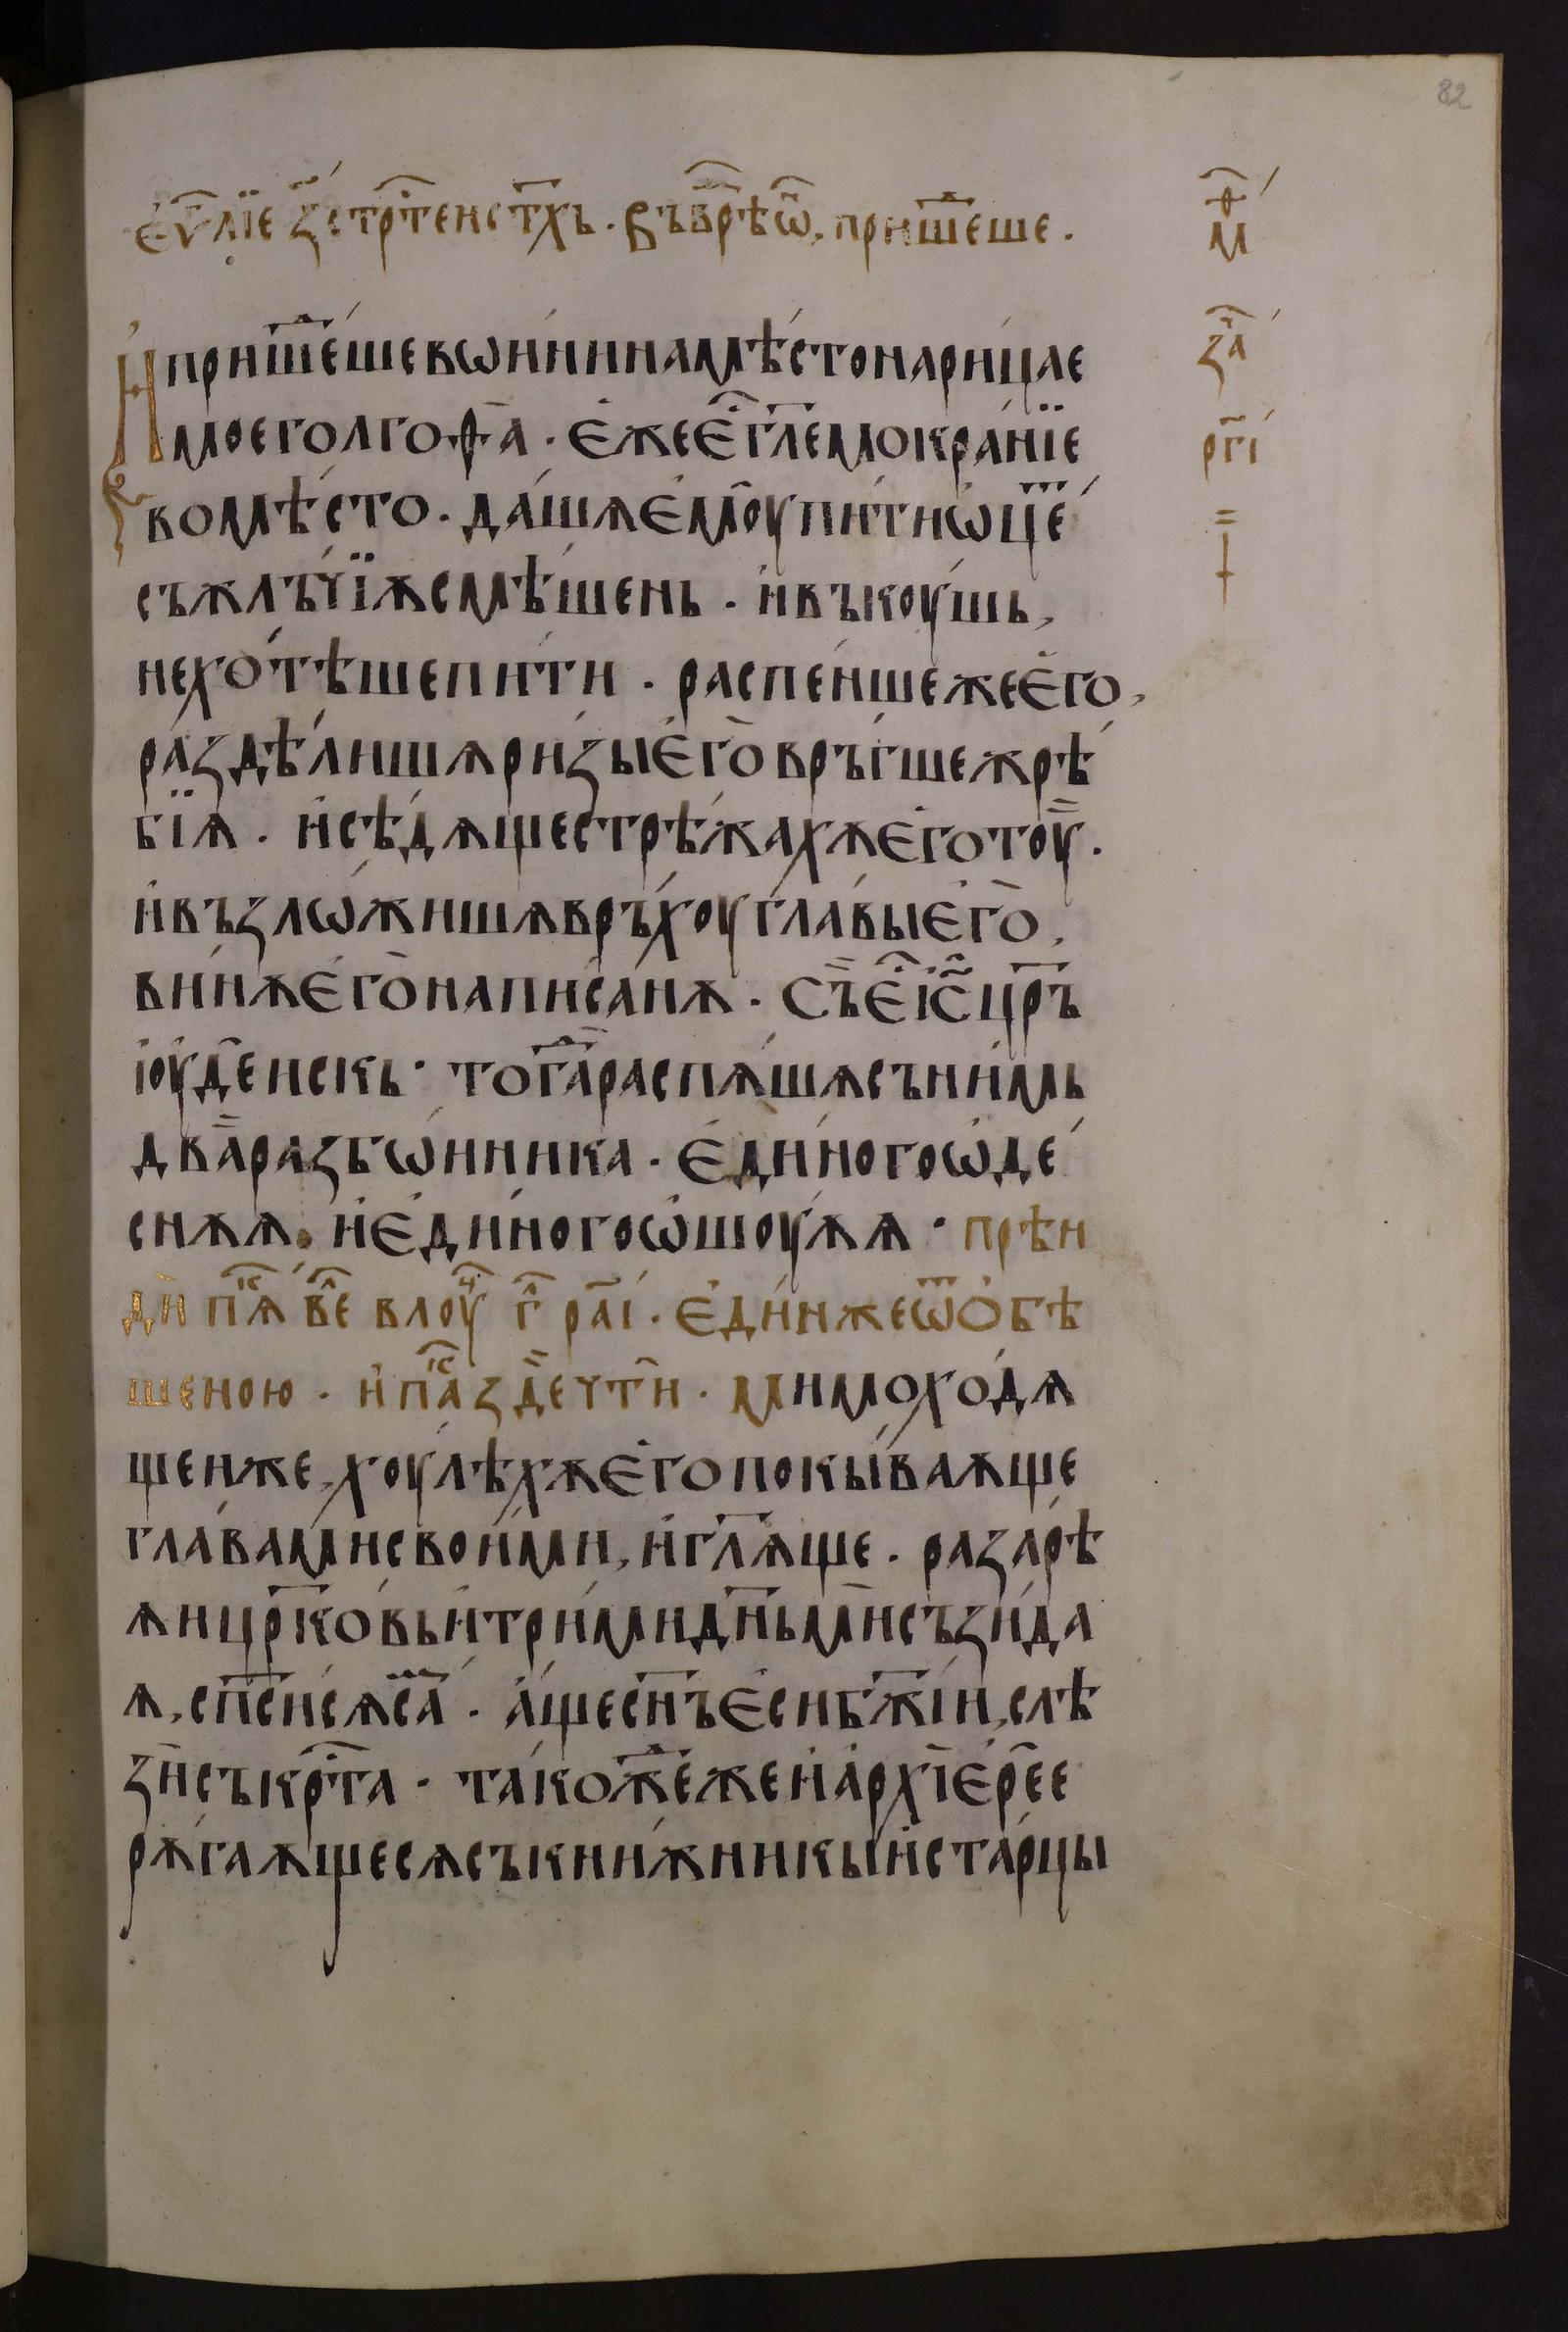 82
еѵ҃лїе з҃ стр҇тен ст҃хъ. Въ вр҇ѣ ѡ҃, пришⷣеше.
М҇ⷴ
И пришⷣе́ше вѡи́ни на мѣ́сто нари́цае
за҇ⷱ
мое голгоѳа̀. є́же є҇ⷭ гл҃емо кра́нїе
рг҃і
во мѣ́сто. да́шѧ є́мо̀у пи́ти ѡ҆це́
съ жлъ́чїѫ смѣ́шень. и҆ въкоу́шь,
не хо́тѣше пи́ти. распе́нше же є҆го̀,
ра́здѣ́лишѧ ри́зы є҆го̀ връ́гше жрѣ́
бїѧ. и҆ сѣ́дѧще стрѣ́жахѫ є҆го тоу̏.
и҆ възло́жишѧ връ́хоу гла́вы є҆го̀,
ви́нѫ є҆го̀ напи́санѫ. Съ̏ є҇ⷭ і҆с҃ цр҃ъ
і҆оу҆де́нскь. тогⷣа̀ распѧ́шѧ съ ни́мь
два̏ разбѡ́нника. є҆ди́ного ѡ҆де́
снѫѧ, и҆ є҆ди́ного ѡ҆шоу́ѫѧ. прѣи
ди̏ п҇ⷦѧ́ в҇ⷧе в лоу҇ⷦ г҇ⷧ ра҃і. є҆ди́н же ѿ ѻ҆бѣ
шеною. и҆ п҇ⷦа зд̏е чти̏. мимохо́дѧ
щеи же, хоу́лѣхѫ є҆го̀ покы́ваѫще
гла́вами свои́ми, и҆ гл҃ѫще. разарѣ́
ѫи цр҃ко́вь и҆ три́ми дн҃ьми̏ съзи́да
ѫ, сп҃си́ сѧ са́. а҆́ще сн҃ъ є҆си бж҃їи, слѣ́
зи̏ съ кр҇ⷭта. та́кожⷣе же и҆ а҆рхїє҆ре́е
рѫ́гаѫще сѧ съ кни́жникы и҆ ста́рцы